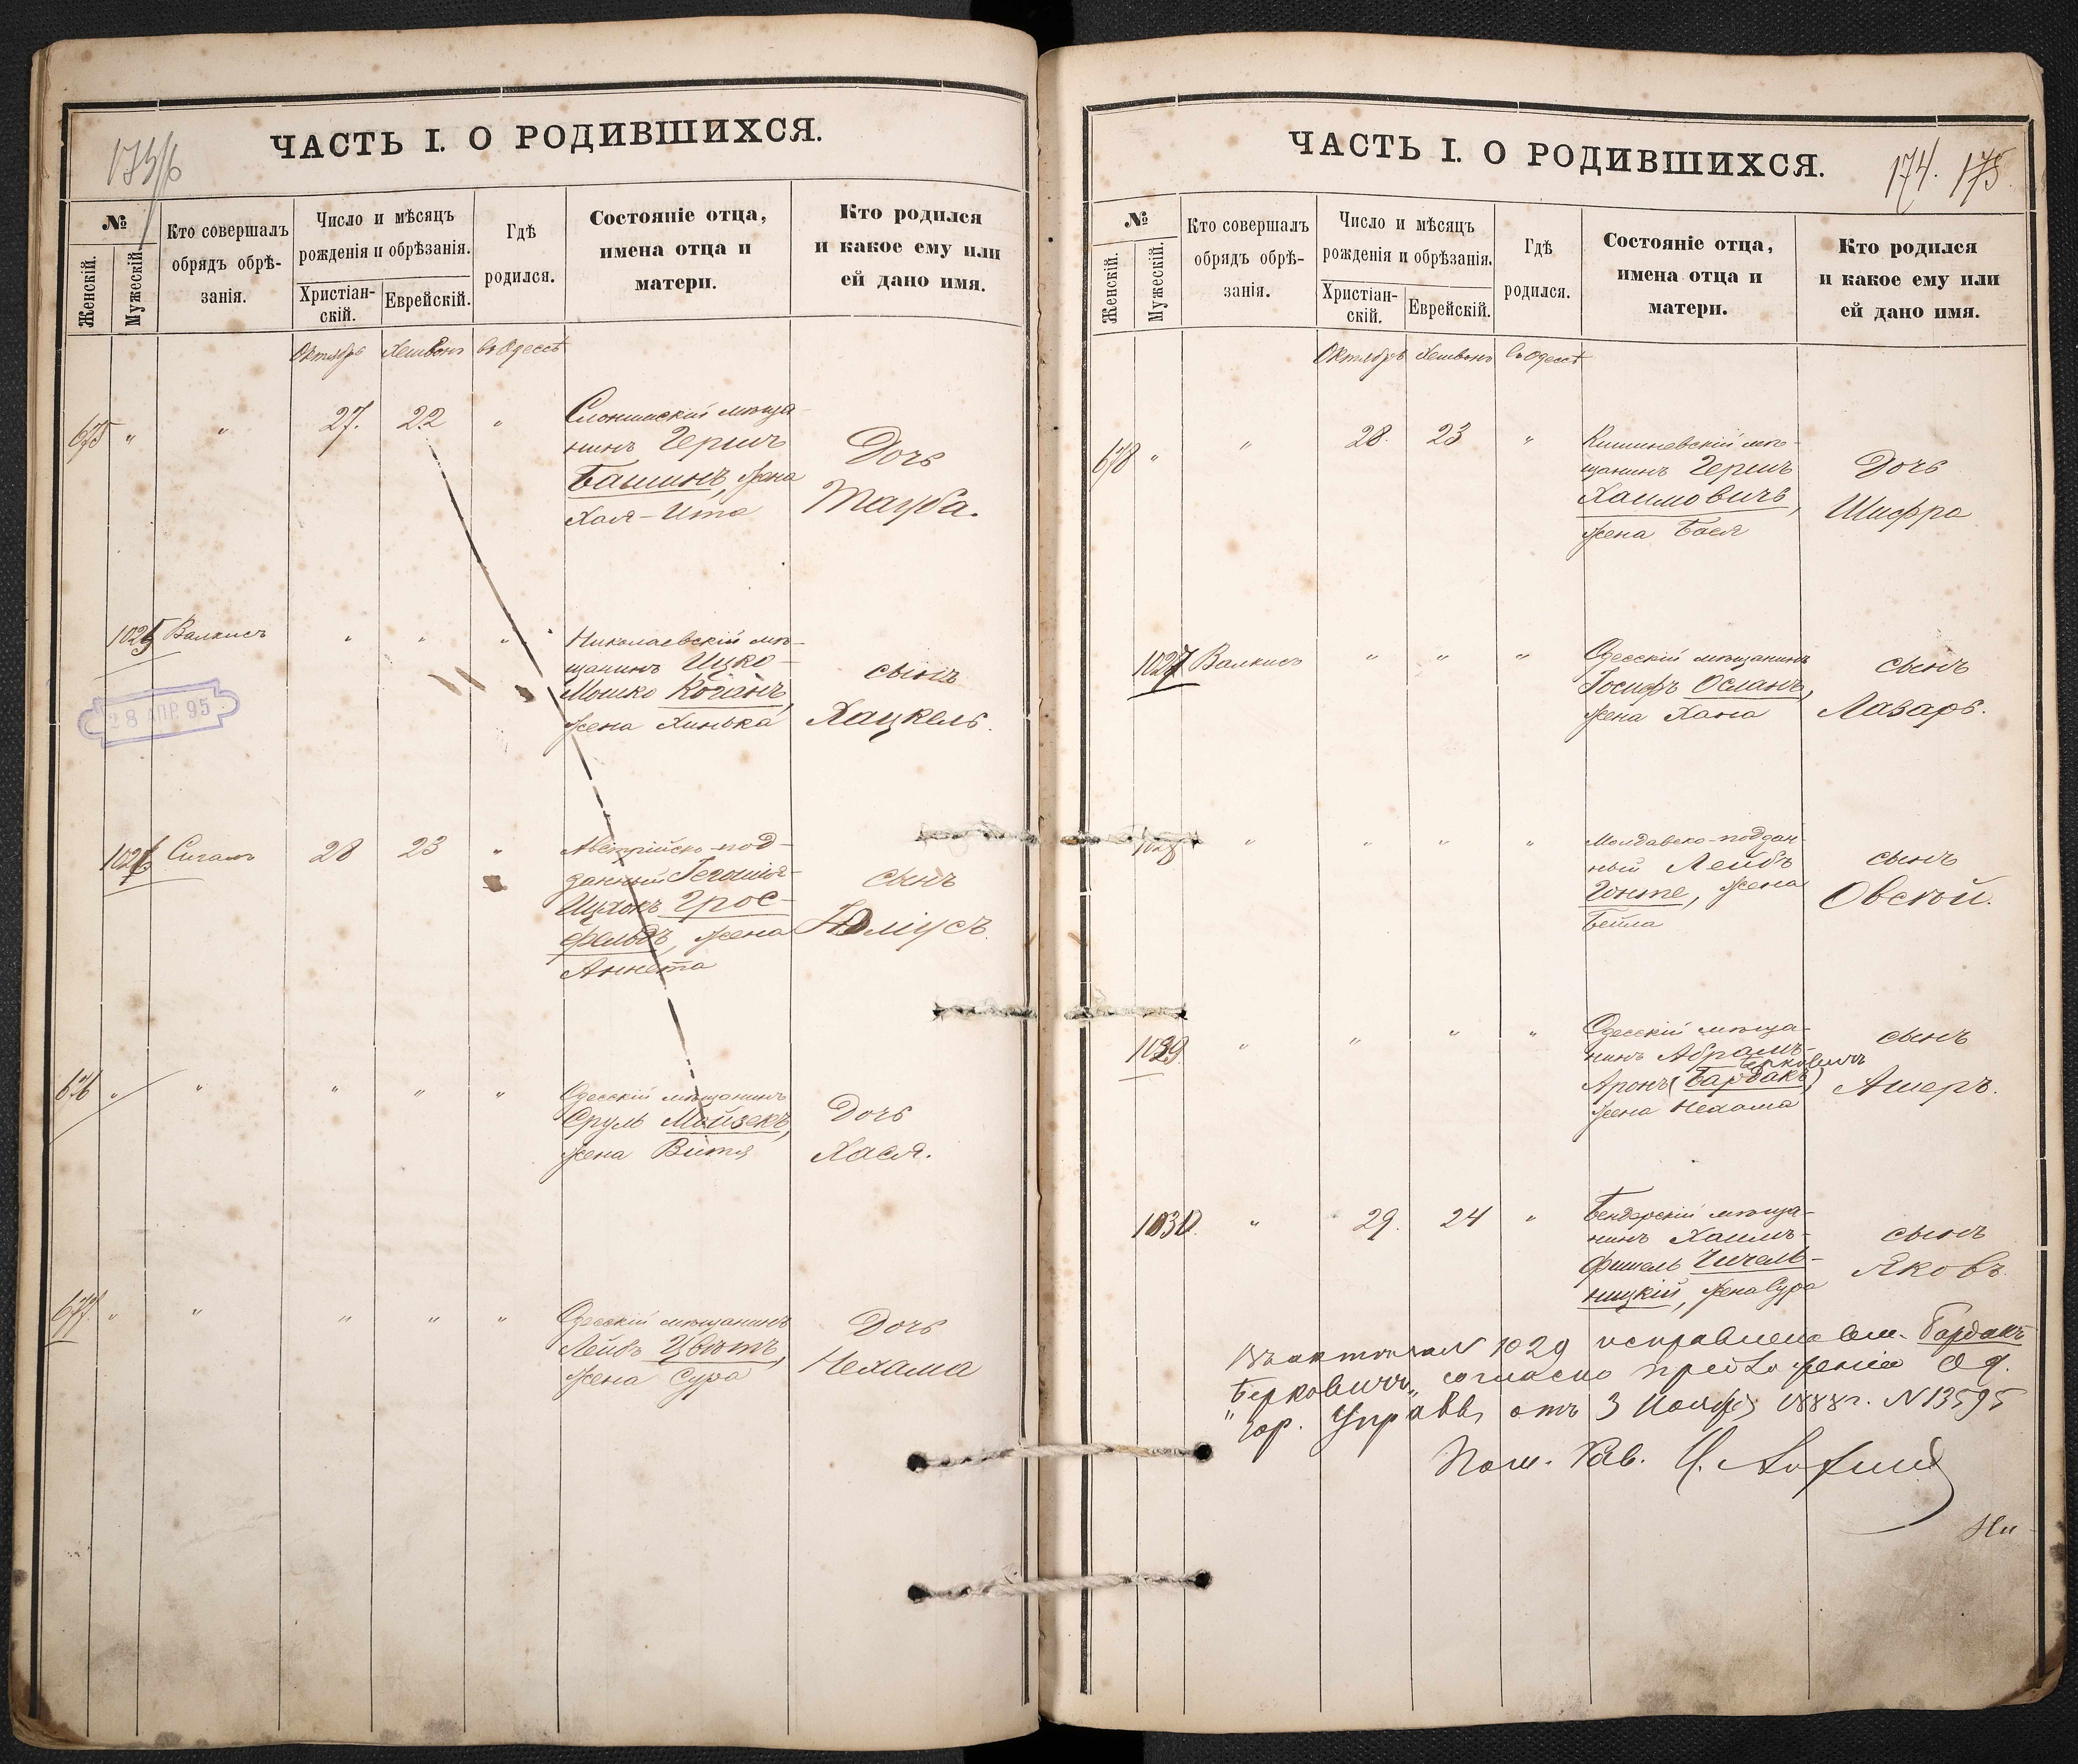 ЧАСТЬ I. О РОДИВШИХСЯ.
№
Женскій.
Мужескій.
Кто совершалъ
обрядъ обрѣ-
занія.
Число и мѣсяцъ
рожденія и обрѣзанія.
Христіан-
скій.
Еврейскій.
Гдѣ
родился.
Состояніе отца,
имена отца и
матери.
Кто родился
и какое ему или
ей дано имя.
Октябрь Хешвонъ въ Одессѣ
675 " " 27. 22 "
Слонимскій мѣща-
нинъ Гершъ
Башинъ, жена
Хая-Ита
Дочь
Тауба.
1025 Валкисъ " " "
Николаевскій мѣ-
щанинъ Ицко-
Мошко Коганъ,
жена Хинька
сынъ
Хацкель.
28 АПР. 95
1026 Сигалъ 28 23 "
Австрійско-под-
данный
Ицхокъ Грос-
фельдъ, жена
Аннета
сынъ
Юліусъ
676 " " " " "
Одесскій мѣщанинъ
Сруль Мойзекъ,
жена
Дочь
Хася.
677. " " " " "
Одесскій мѣщанинъ
Лейбъ Цвѣтъ,
жена Сура
Дочь
Нехама
ЧАСТЬ I. О РОДИВШИХСЯ.
174. 175
№
Женскій.
Мужескій.
Кто совершалъ
обрядъ обрѣ-
занія.
Число и мѣсяцъ
рожденія и обрѣзанія.
Христіан-
скій.
Еврейскій.
Гдѣ
родился.
Состояніе отца,
имена отца и
матери.
Кто родился
и какое ему или
ей дано имя.
Октябрь Хешвонъ въ Одессѣ
678 " " 28. 23 "
Кишиневскій мѣ-
щанинъ Гершъ
Хаимовичъ,
жена Бася
Дочь
Шифра
1027 Валкисъ " " "
Одесскій мѣщанинъ
Іосифъ Осланъ,
жена Хана
сынъ
Лазарь.
1028 " " " "
Молдавско-поддан-
ный Лейбъ
жена
Бейла
сынъ
Овсей.
1029. " " " "
Одесскій мѣща-
нинъ Абрамъ-
Берковичъ
Аронъ (Бардакъ)
жена Нехама
сынъ
Ашеръ.
1030. " 29. 24 "
Бендерскій мѣща-
нинъ Хаимъ-
Фишель Чичель-
ницкій, жена Сура
сынъ
Яковъ.
N 1029 исправлено Бардакъ
"Берковичъ" согласно предложенію Од.
Гор. Управы отъ 3 Ноября 1888 г. N 13595
Пом. Рав.